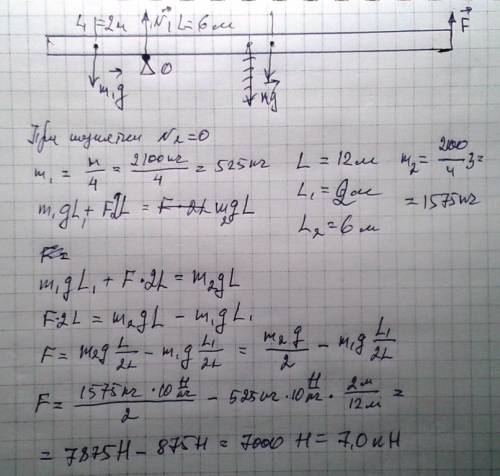 L₁=2м N⃗₁ L=6м F⃗
m₁g⃗ O mg⃗
При поднятии N₂=0
m₁ = m/4 = 2100кг/4 = 525кг L = 12м m₂ = 2100/4 · 3 =
m₁gL₁ + F2L = m₂gL L₁ = 2м = 1575кг
L₂ = 6м
m₁gL₁ + F·2L = m₂gL
F·2L = m₂gL − m₁gL₁
F = m₂g L/2L − m₁g L₁/2L = m₂g/2 − m₁g L₁/2L
F = 1575кг·10 Н/кг / 2 − 525кг·10 Н/кг · 2м/12м =
= 7875Н − 875Н = 7000 Н = 7,0 кН